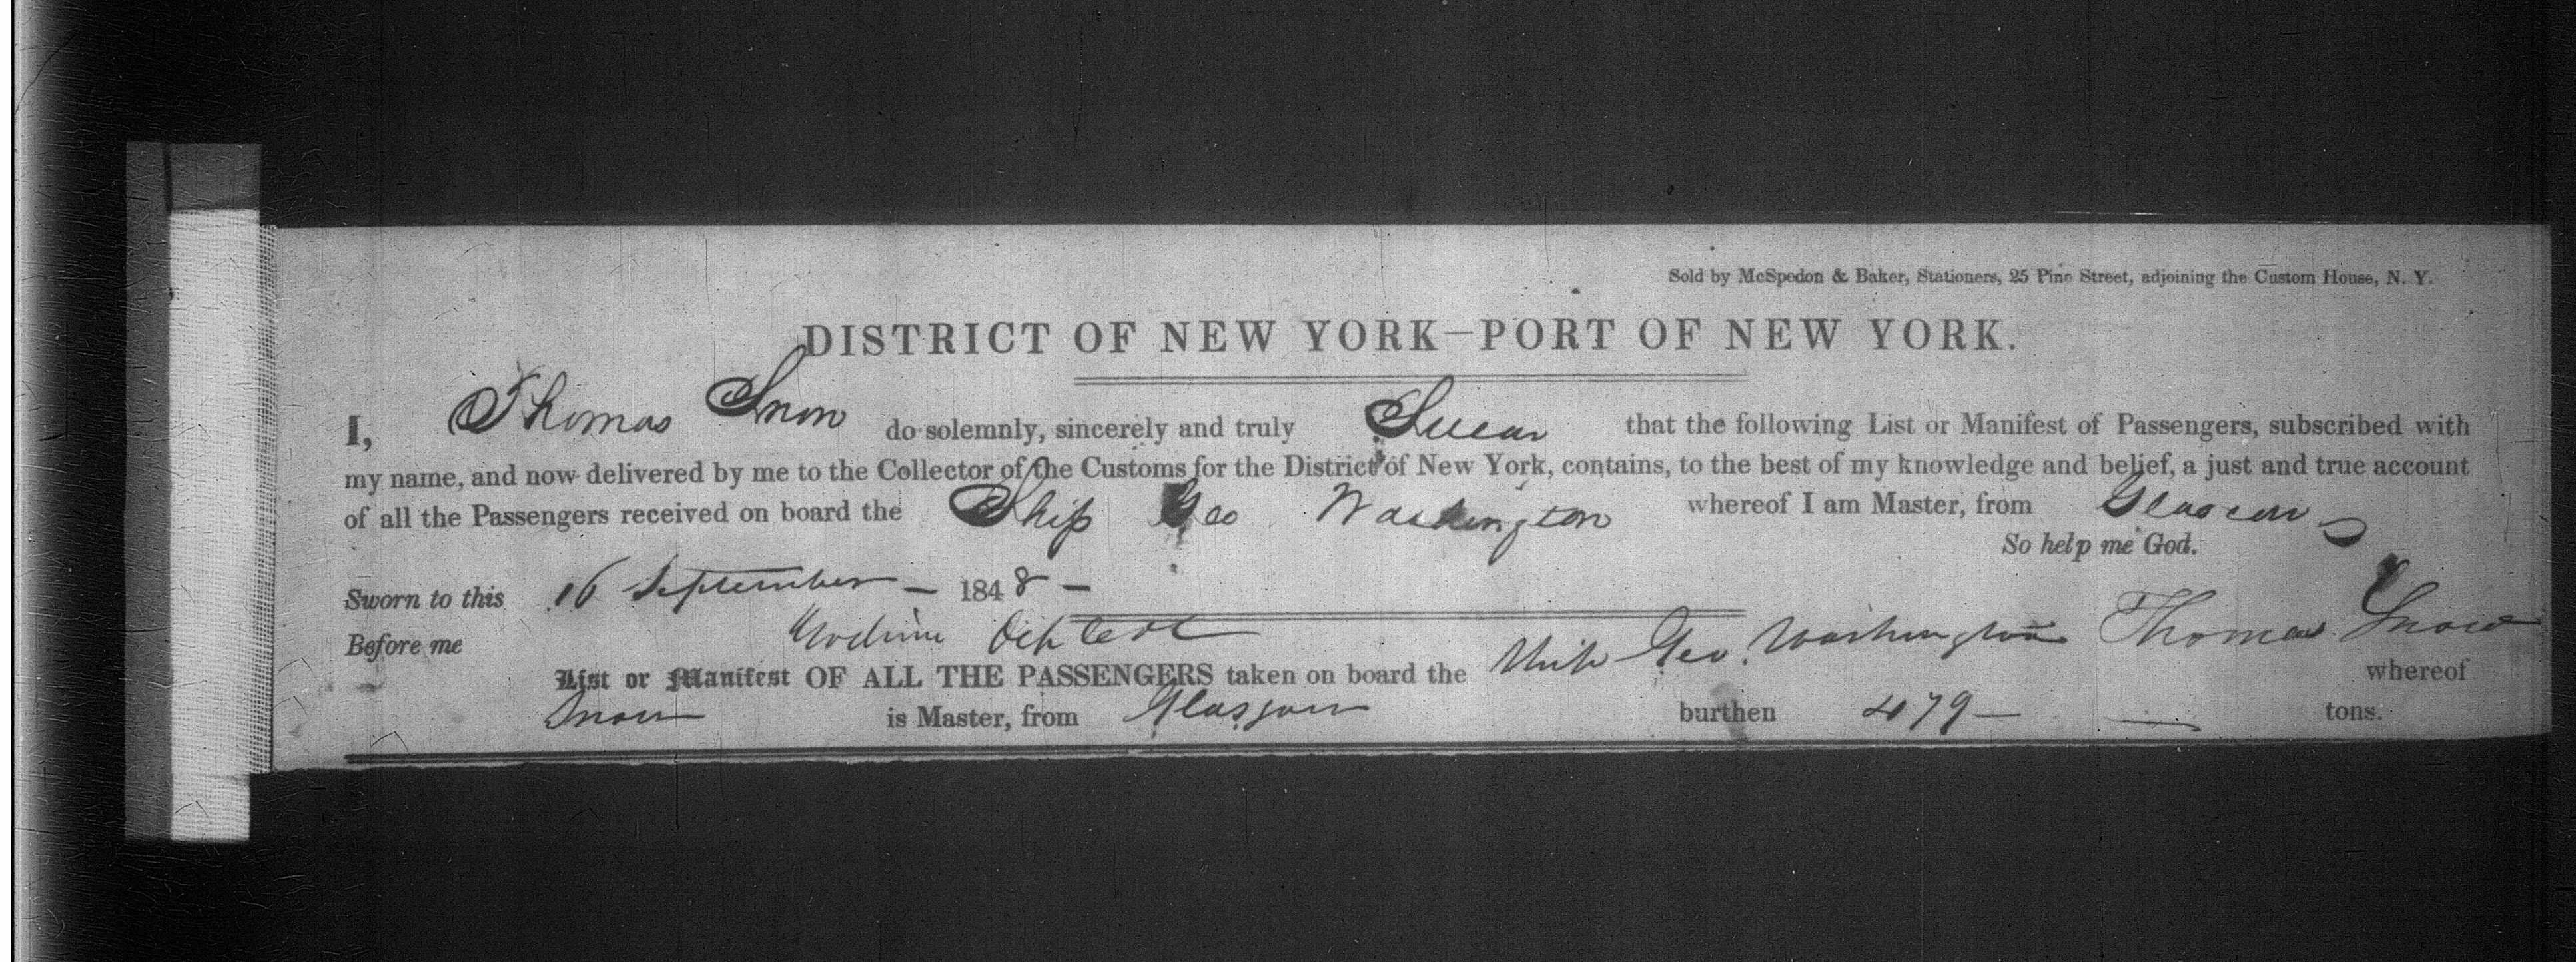 Sold by McSpedon & Baker, Stationers, 25 Pine Street, adjoining the Custom House, N. Y.
DISTRICT OF NEW YORK—PORT OF NEW YORK.
I, Thomas Snow do solemnly, sincerely and truly Swear that the following List or Manifest of Passengers, subscribed with
my name, and now delivered by me to the Collector of the Customs for the District of New York, contains, to the best of my knowledge and belief, a just and true account
of all the Passengers received on board the Ship Geo Washington whereof I am Master, from Glascow
So help me God.
Sworn to this 16 September — 1848 —
Before me Thomas Snow
List or Manifest OF ALL THE PASSENGERS taken on board the Ship Geo. Washington whereof
Snow is Master, from Glasgow burthen 479 — tons.